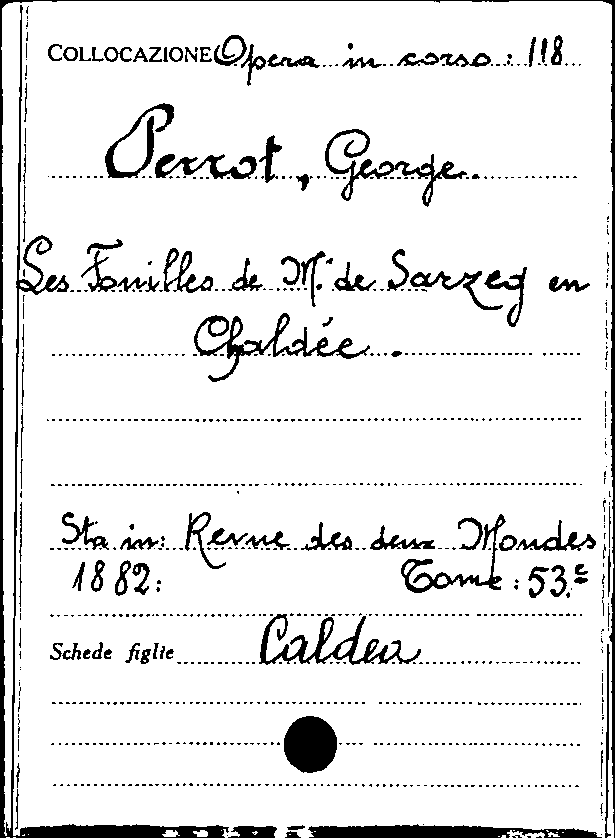 COLLOCAZIONE Opera in corso: 118
Perrot, George.
Les Fouilles de M.r de Sarzeg en
Chaldée.
Sta in: Revue des deux Mondes
1882: Tome: 53.e
Schede figlie Caldea